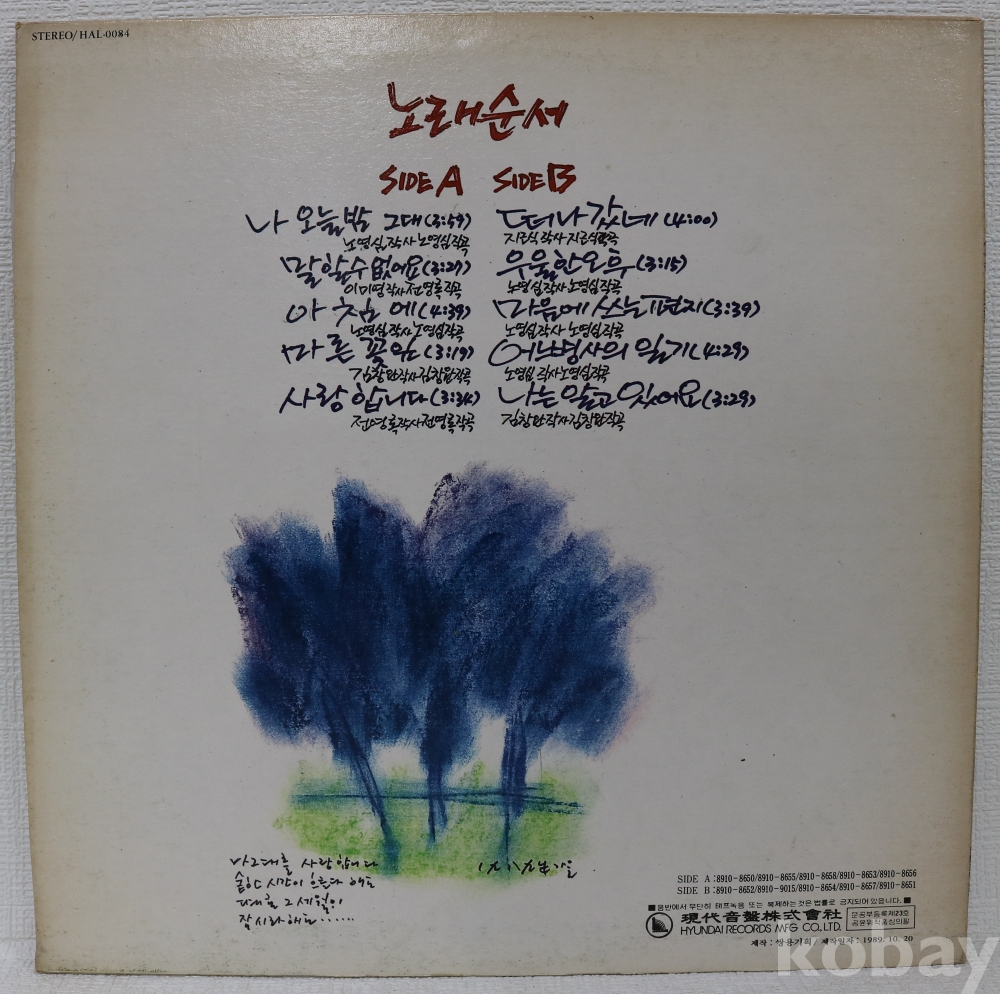 STEREO/HAL-0084
노래순서
SIDE A
나 오늘밤 그대(3:59)
노영심작사 노영심작곡
말할수 없어요(3:27)
이미영작사 전영록작곡
아침에(4:39)
노영심작사 노영심작곡
마른 꽃잎(3:19)
김창완작사 김창완작곡
사랑합니다(3:34)
전영록작사 전영록작곡
SIDE B
떠나갔네(4:00)
지근식작사 지근식작곡
우울한오후(3:15)
노영심작사 노영심작곡
마음에 쓰는 편지(3:39)
노영심작사 노영심작곡
어느병사의 일기(4:29)
노영심 작사 노영심작곡
나는 알고 있어요(3:29)
김창완작사 김창완작곡
나그대를 사랑합니다
숱한 시간이 흐른다 해도
그 세월이
잠시라해도......
가을
SIDE A:8910-8650/8910-8655/8910-8658/8910-8653/8910-8656
SIDE B:8910-8652/8910-9015/8910-8654/8910-8657/8910-8651
■음반에서 무단히 테프녹음 또는 복제하는것은 법률로 금지되어 있읍니다.■
現代音盤株式會社
HYUNDAI RECORDS MFG CO.,LTD.
문공부등록제23호
공윤위작품심의필
제작:쌍용기획/제작일자:1989.10.20
kobay